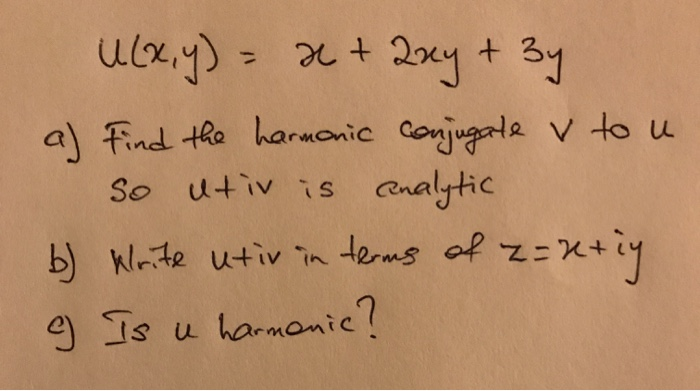 u(x,y) = x + 2xy + 3y
a) Find the harmonic conjugate v to u
so u+iv is analytic
b) Write u+iv in terms of z=x+iy
c) Is u harmonic?